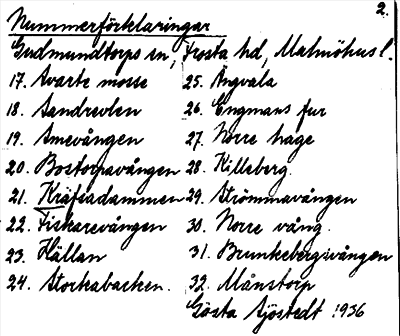 2.
Nummerförklaringar
Gudmundtorps sn, Frosta hd, Malmöhus l.
17. Svarte mosse
18. Sandrevlen
19. Amevången
20. Bostorpavången
21. Kräftadammen
22. Fiskarevången
23. Hällan
24. Storkabacken.
25. Ängvala
26. Engmans fur
27. Norre hage
28. Killeberg.
29. Strömmavången
30. Norre vång.
31. Brunkebergsvången
32. Månstorp
Gösta Sjöstedt 1936